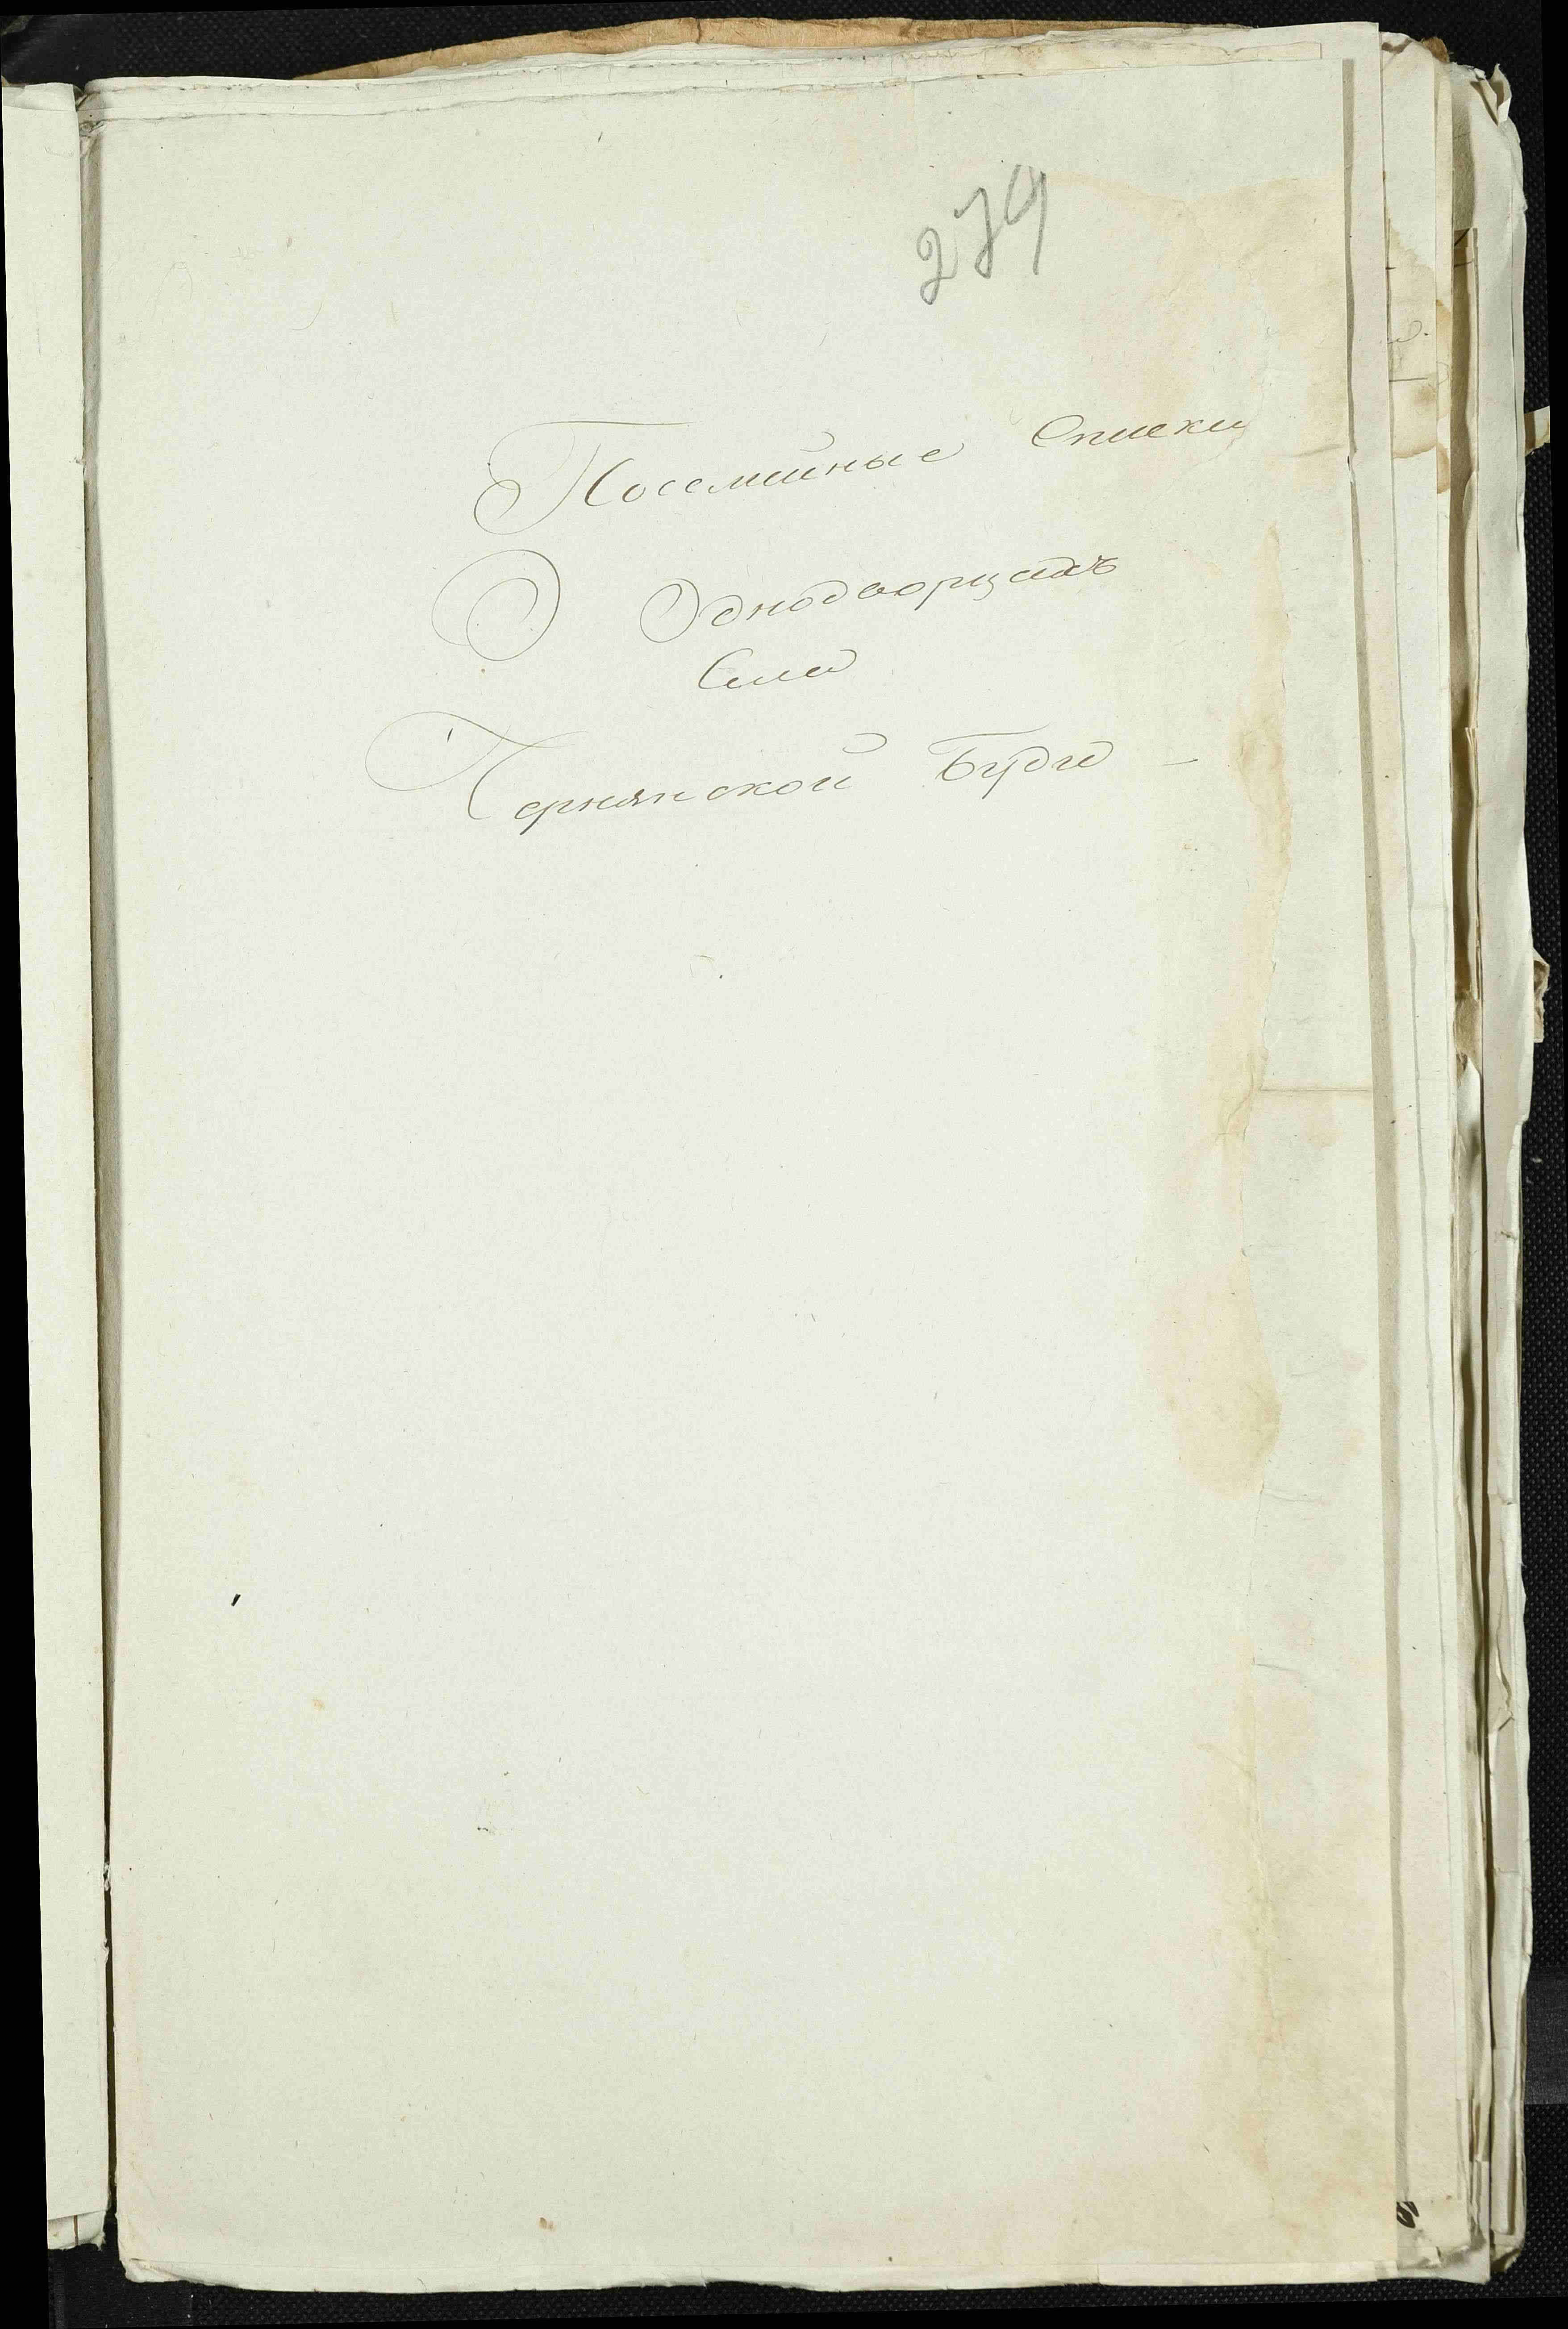 279
Посемейные Списки
О Однодворцахъ
Села
Чернянской Буди